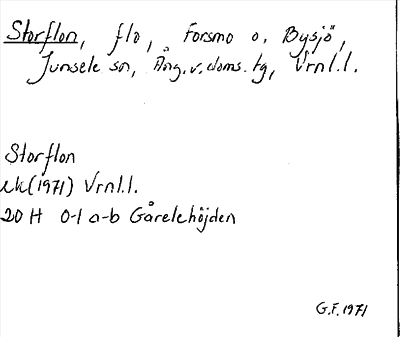 Storflon, flo, Forsmo o. Bysjö,
Junsele sn, Ång. v. doms. tg, Vrnl.l.
Storflon
ek (1971) Vrnl.l.
20 H 0-1 a-b Gårelehöjden
G.F. 1971